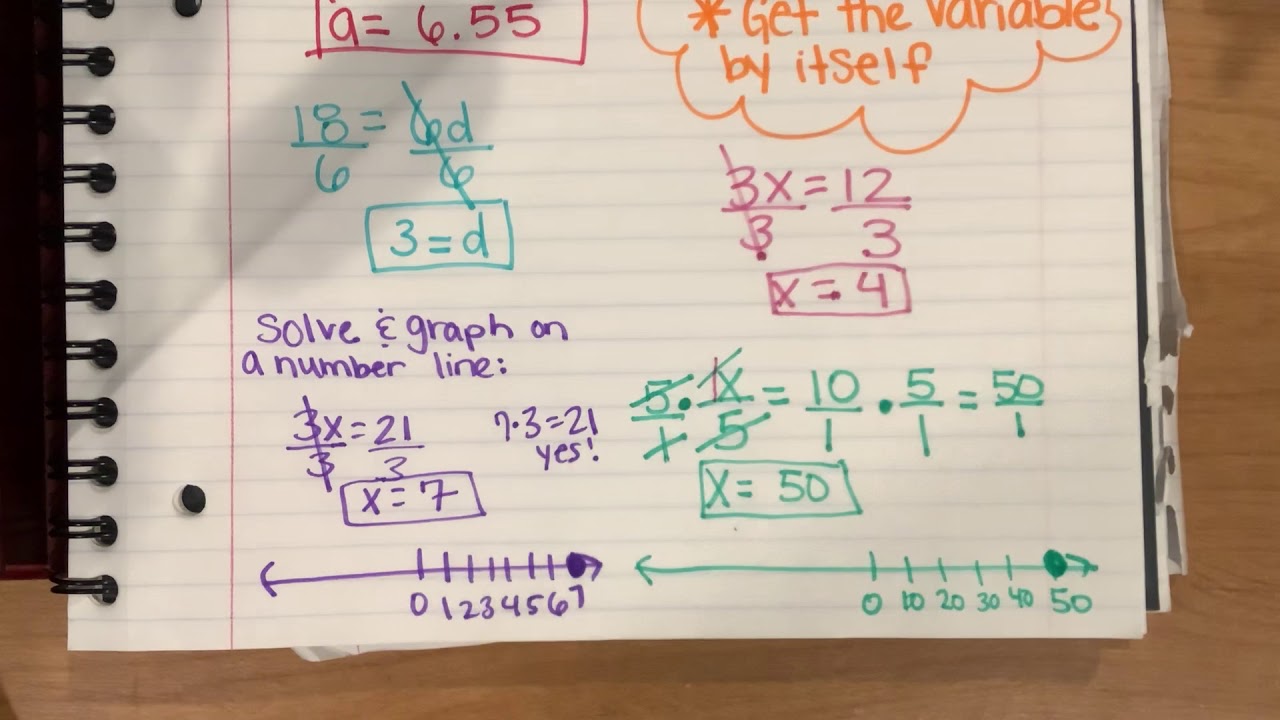 a = 6.55
* Get the variable
by itself
18/6 = 6d/6
3 = d
3x/3 = 12/3
x = 4
Solve & graph on
a number line:
3x/3 = 21/3
7·3=21
yes!
x = 7
0 1 2 3 4 5 6 7
5/1 · 1x/5 = 10/1 · 5/1 = 50/1
x = 50
0 10 20 30 40 50